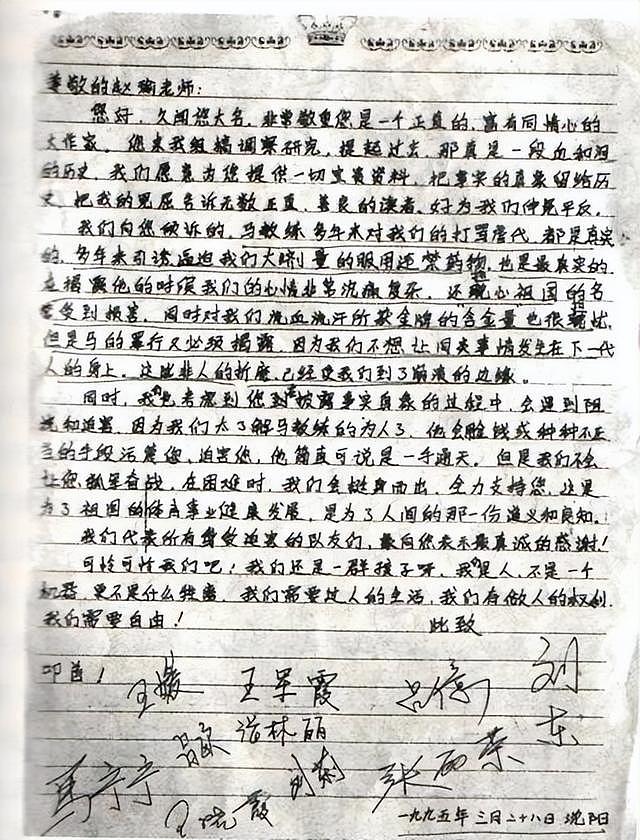 尊敬的赵瑜老师：
您好，久闻您大名，非常敬重您是一个正直的，富有同情心的
大作家。您来我组搞调察研究，提起过去，那真是一段血和泪
的历史，我们愿意为您提供一切宝贵资料，把事实的真象留给历
史，把我的冤屈告诉无数正直、善良的读者，好为我们伸冤平反。
我们向您倾诉的，马教练多年来对我们的打骂虐代，都是真实
的，多年来引诱逼迫我们大剂量的服用违禁药物，也是最真实的，
揭露他的时候我们的心情非常沉痛复杂，还担心祖国的名
受到损害，同时对我们流血流汗所获金牌的含金量也很担忧，
但是马的罪行又必须揭露，因为我们不想让同类事情发生在下一代
人的身上。这些非人的折磨，已经使我们到了崩溃的边缘。
同时，我也考虑到您到披露事实真象的过程中，会遇到阻
挠和迫害，因为我们太了解马教练的为人了，他会赔钱或种种不正
当的手段污蔑您，迫害您，他简直可说是一手通天。但是我们不会
让您孤军奋战，在困难时，我们会挺身而出，全力支持您，这是
为了祖国的体育事业健康发展，是为了人间的那一份道义和良知。
我们代表所有蒙受迫害的队友们，最向您表示最真诚的感谢！
可怜可怜我们吧！我们还是一群孩子呀，我是人，不是一个
机器，更不是什么牲畜，我们需要过人的生活，我们有做人的权利，
我们需要自由！ 此致
叩首！
王媛 王军霞 吕億 刘东
吕欧 谘林丽
马宁宁 刘莉 张丽荣
王晓霞
一九九五年三月二十八日 沈阳